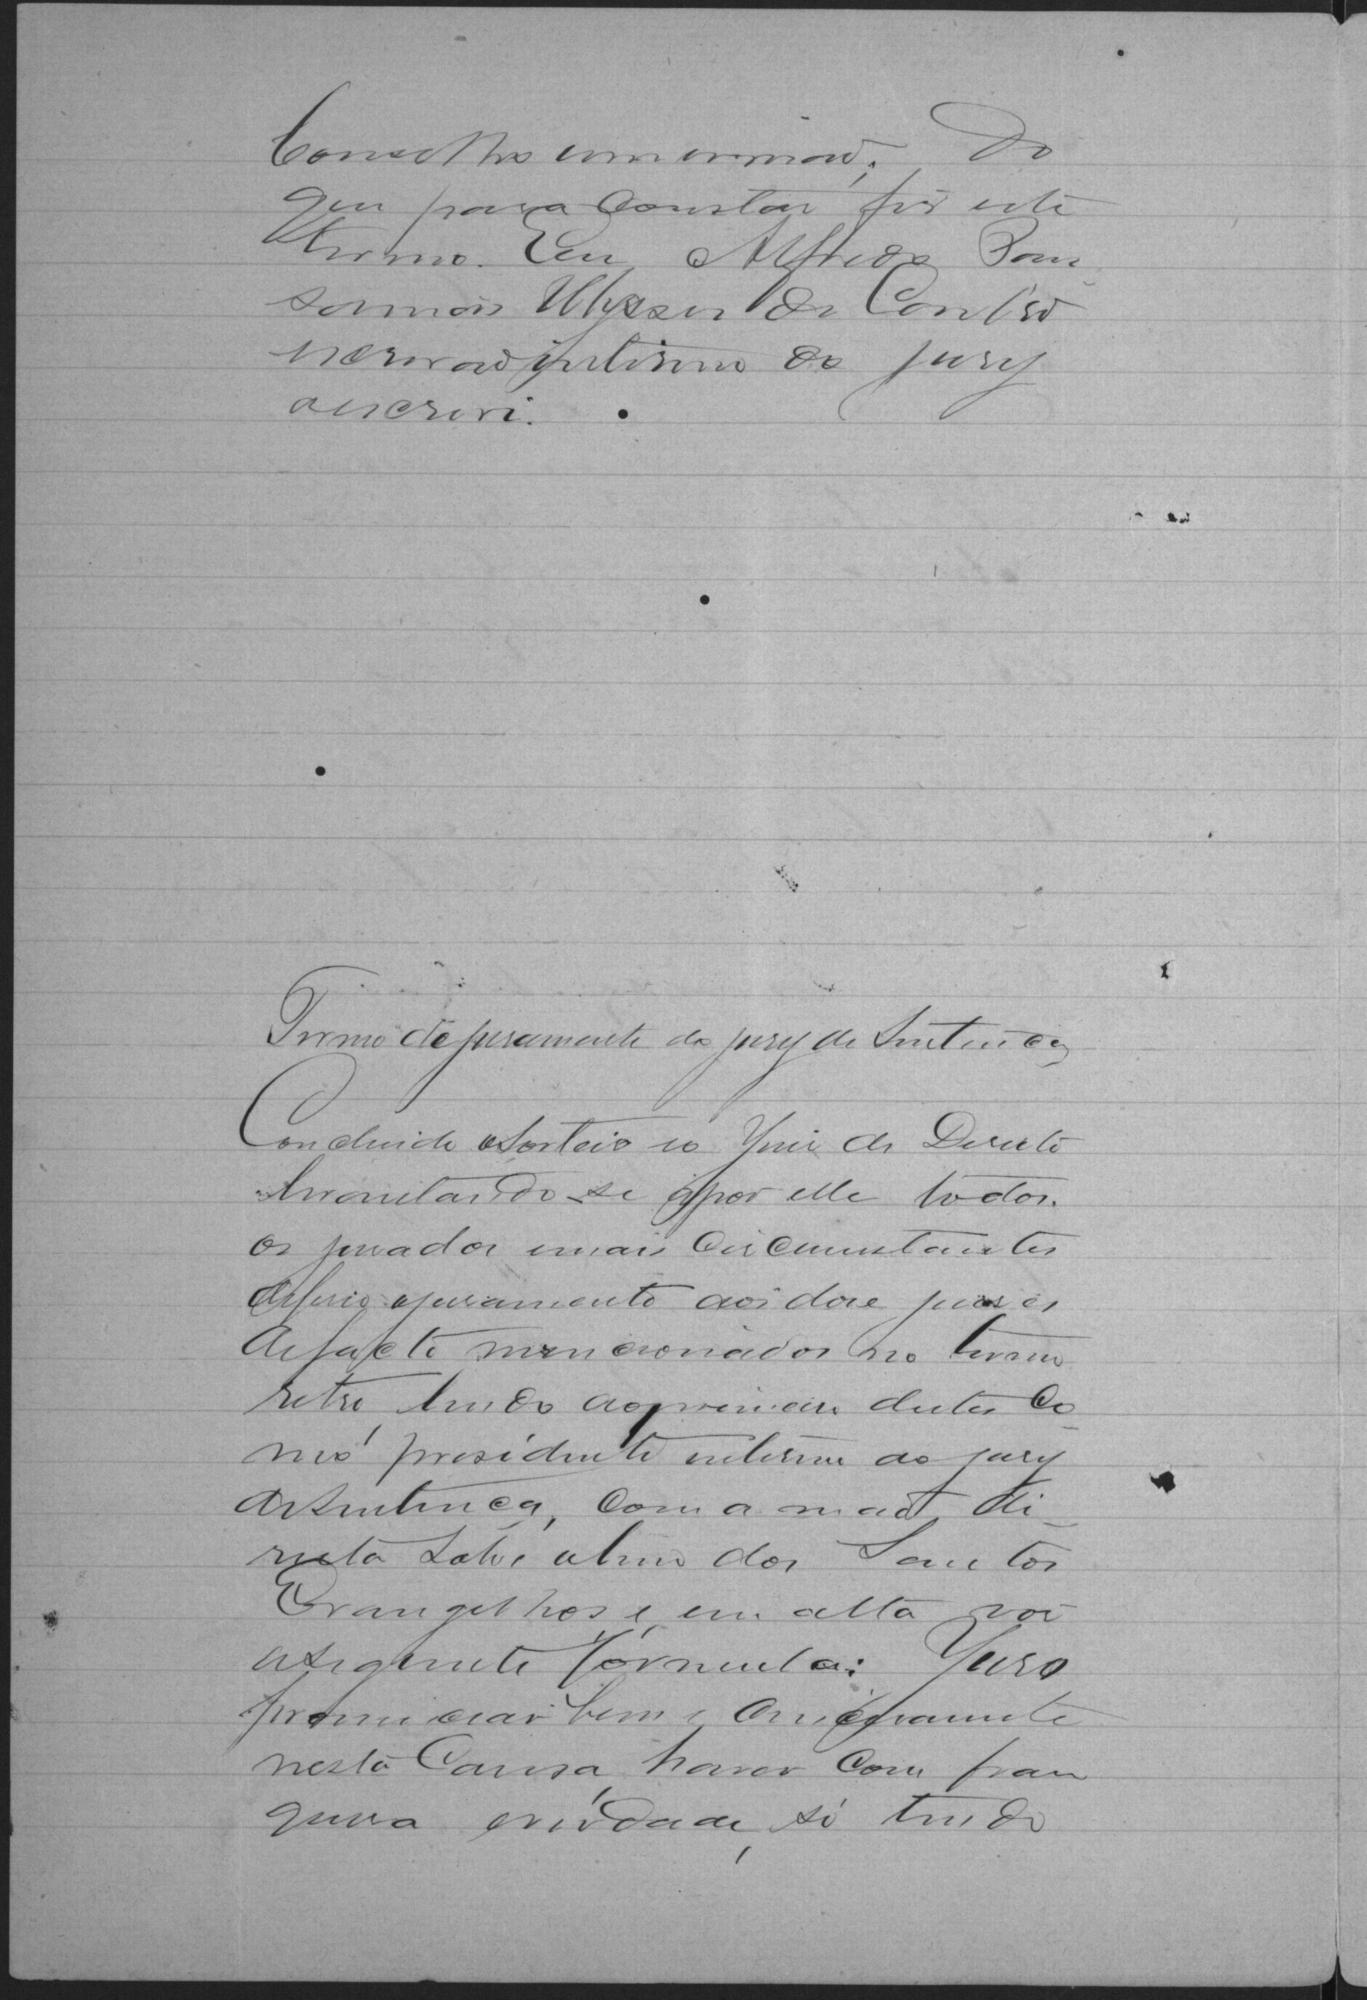 Conselho Do
que para constar fiz este
termo. Eu Alfredo
Ulysses de Castro
escrivaõ interino do jury
o escrevi.
Termo de juramento do jury de Sentença
Concluido o sorteio eo Juiz de Direito
levantando-se após elle todos
os jurados e mais circumstantes
deferio o juramento aos doze juizes
de facto mencionados no termo
retro lendo o primeiro delles co
mo presidente interino do jury
de Sentença, com a maõ di-
reita sobre o livro dos Santos
Evangelhos e, em alta voz
a seguinte formula: Juro
pronunciar bem e sinceramente
nesta Causa, haver com fran
queza e verdade, só tendo